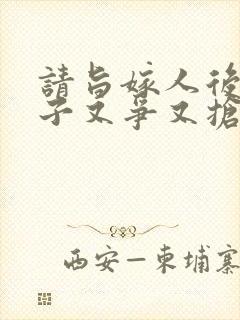 請旨嫁人後
子又爭又搶
西安—柬埔寨